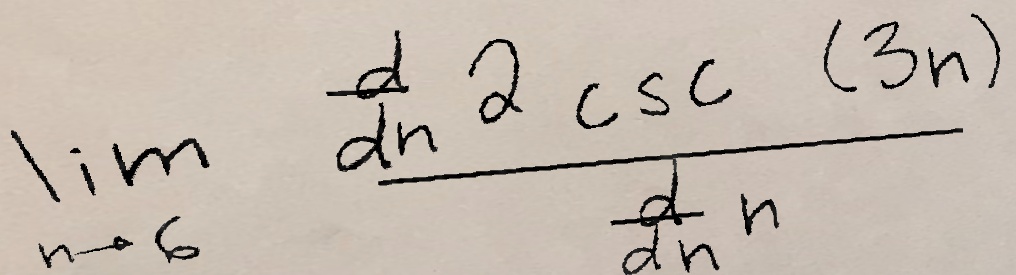 \lim_{n \to 6} \frac{\frac{d}{dn} 2 \csc (3n)}{\frac{d}{dn} n}